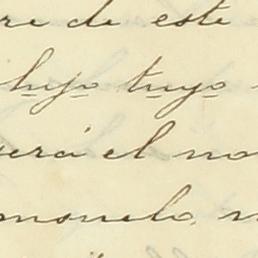 re de este
hijo tuyo
será el no
monelo, n